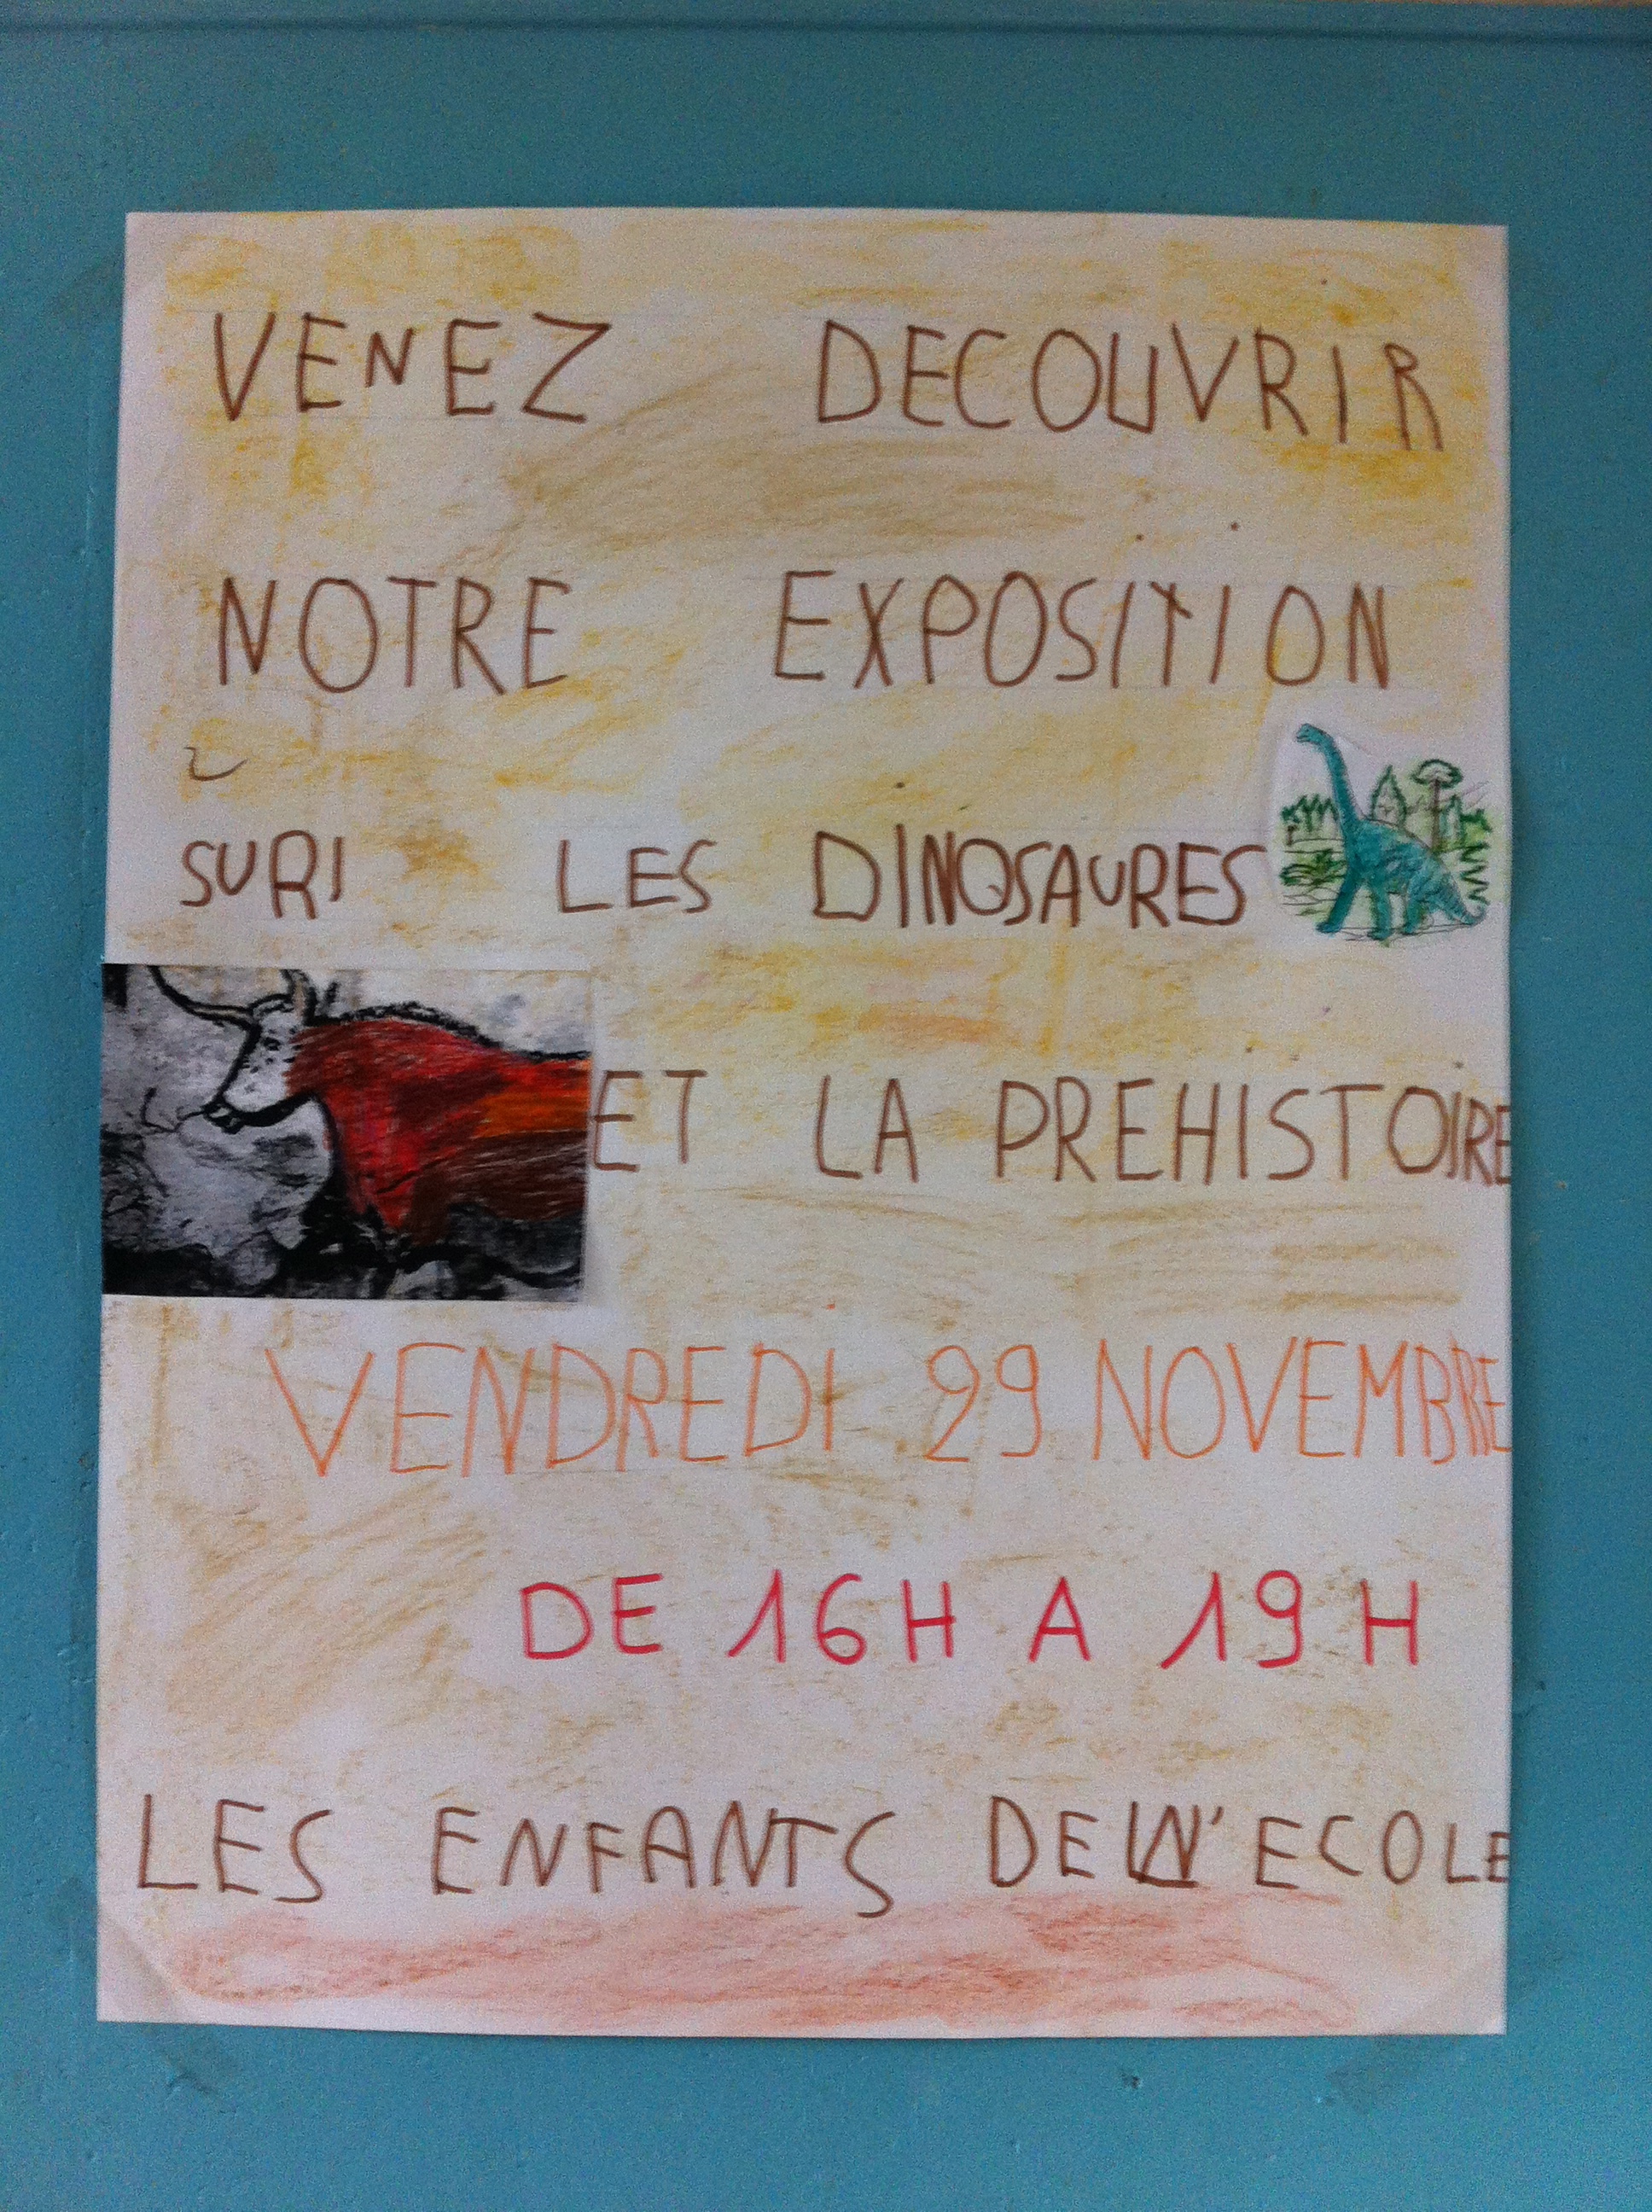 VENEZ DECOUVRIR
NOTRE EXPOSITION
SUR LES DINOSAURES
ET LA PREHISTOIRE
VENDREDI 29 NOVEMBRE
DE 16H A 19H
LES ENFANTS DE L'ECOLE